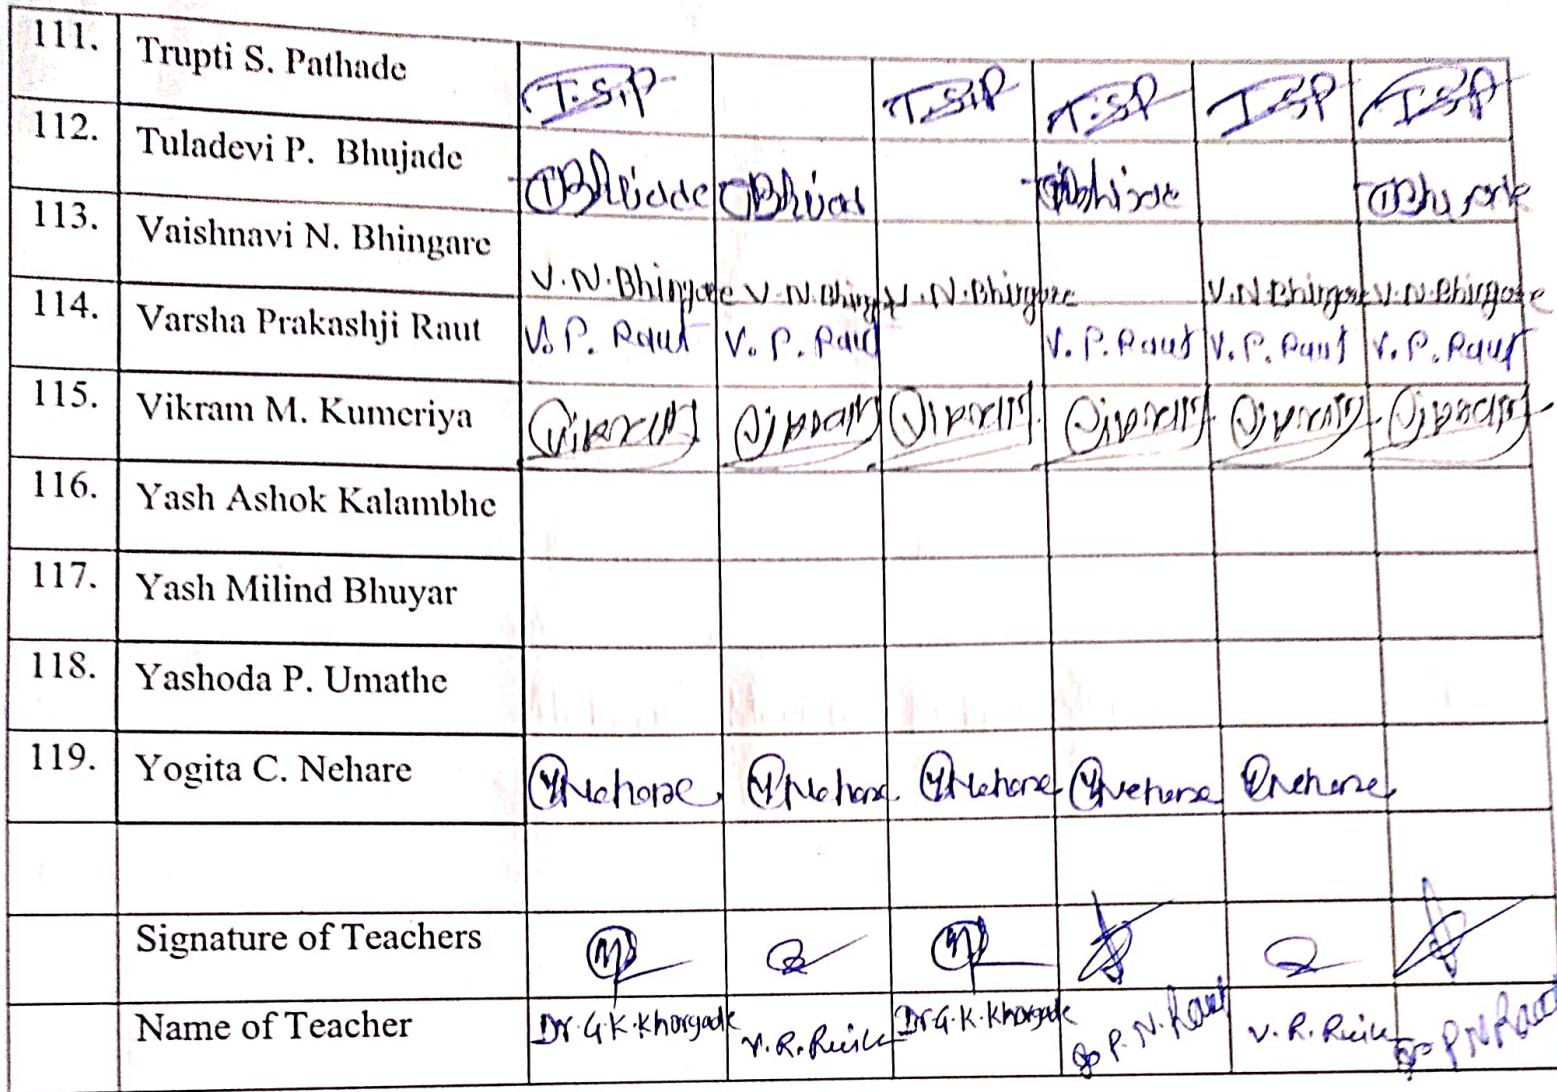 111. Trupti S. Pathade T.S.P T.S.P T.S.P T.S.P T.S.P
112. Tuladevi P. Bhujade
113. Vaishnavi N. Bhingare V.N.Bhingare V.N.Bhingare V.N.Bhingare V.N.Bhingare V.N.Bhingare
114. Varsha Prakashji Raut V. P. Raut V. P. Raut V. P. Raut V. P. Raut V. P. Raut
115. Vikram M. Kumeriya
116. Yash Ashok Kalambhe
117. Yash Milind Bhuyar
118. Yashoda P. Umathe
119. Yogita C. Nehare YNehare YNehare YNehare YNehare YNehare
Signature of Teachers
Name of Teacher Dr. G.K.Khorgade V.R. Dr. G.K.Khorgade P.N.Raut V.R. P.N.Raut